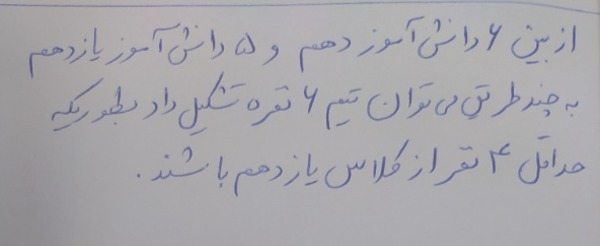 از بین ۶ دانش آموز دهم و ۵ دانش آموز یازدهم
به چند طریق می توان تیم ۶ نفره تشکیل داد بطوریکه
حداقل ۴ نفر از کلاس یازدهم باشند.